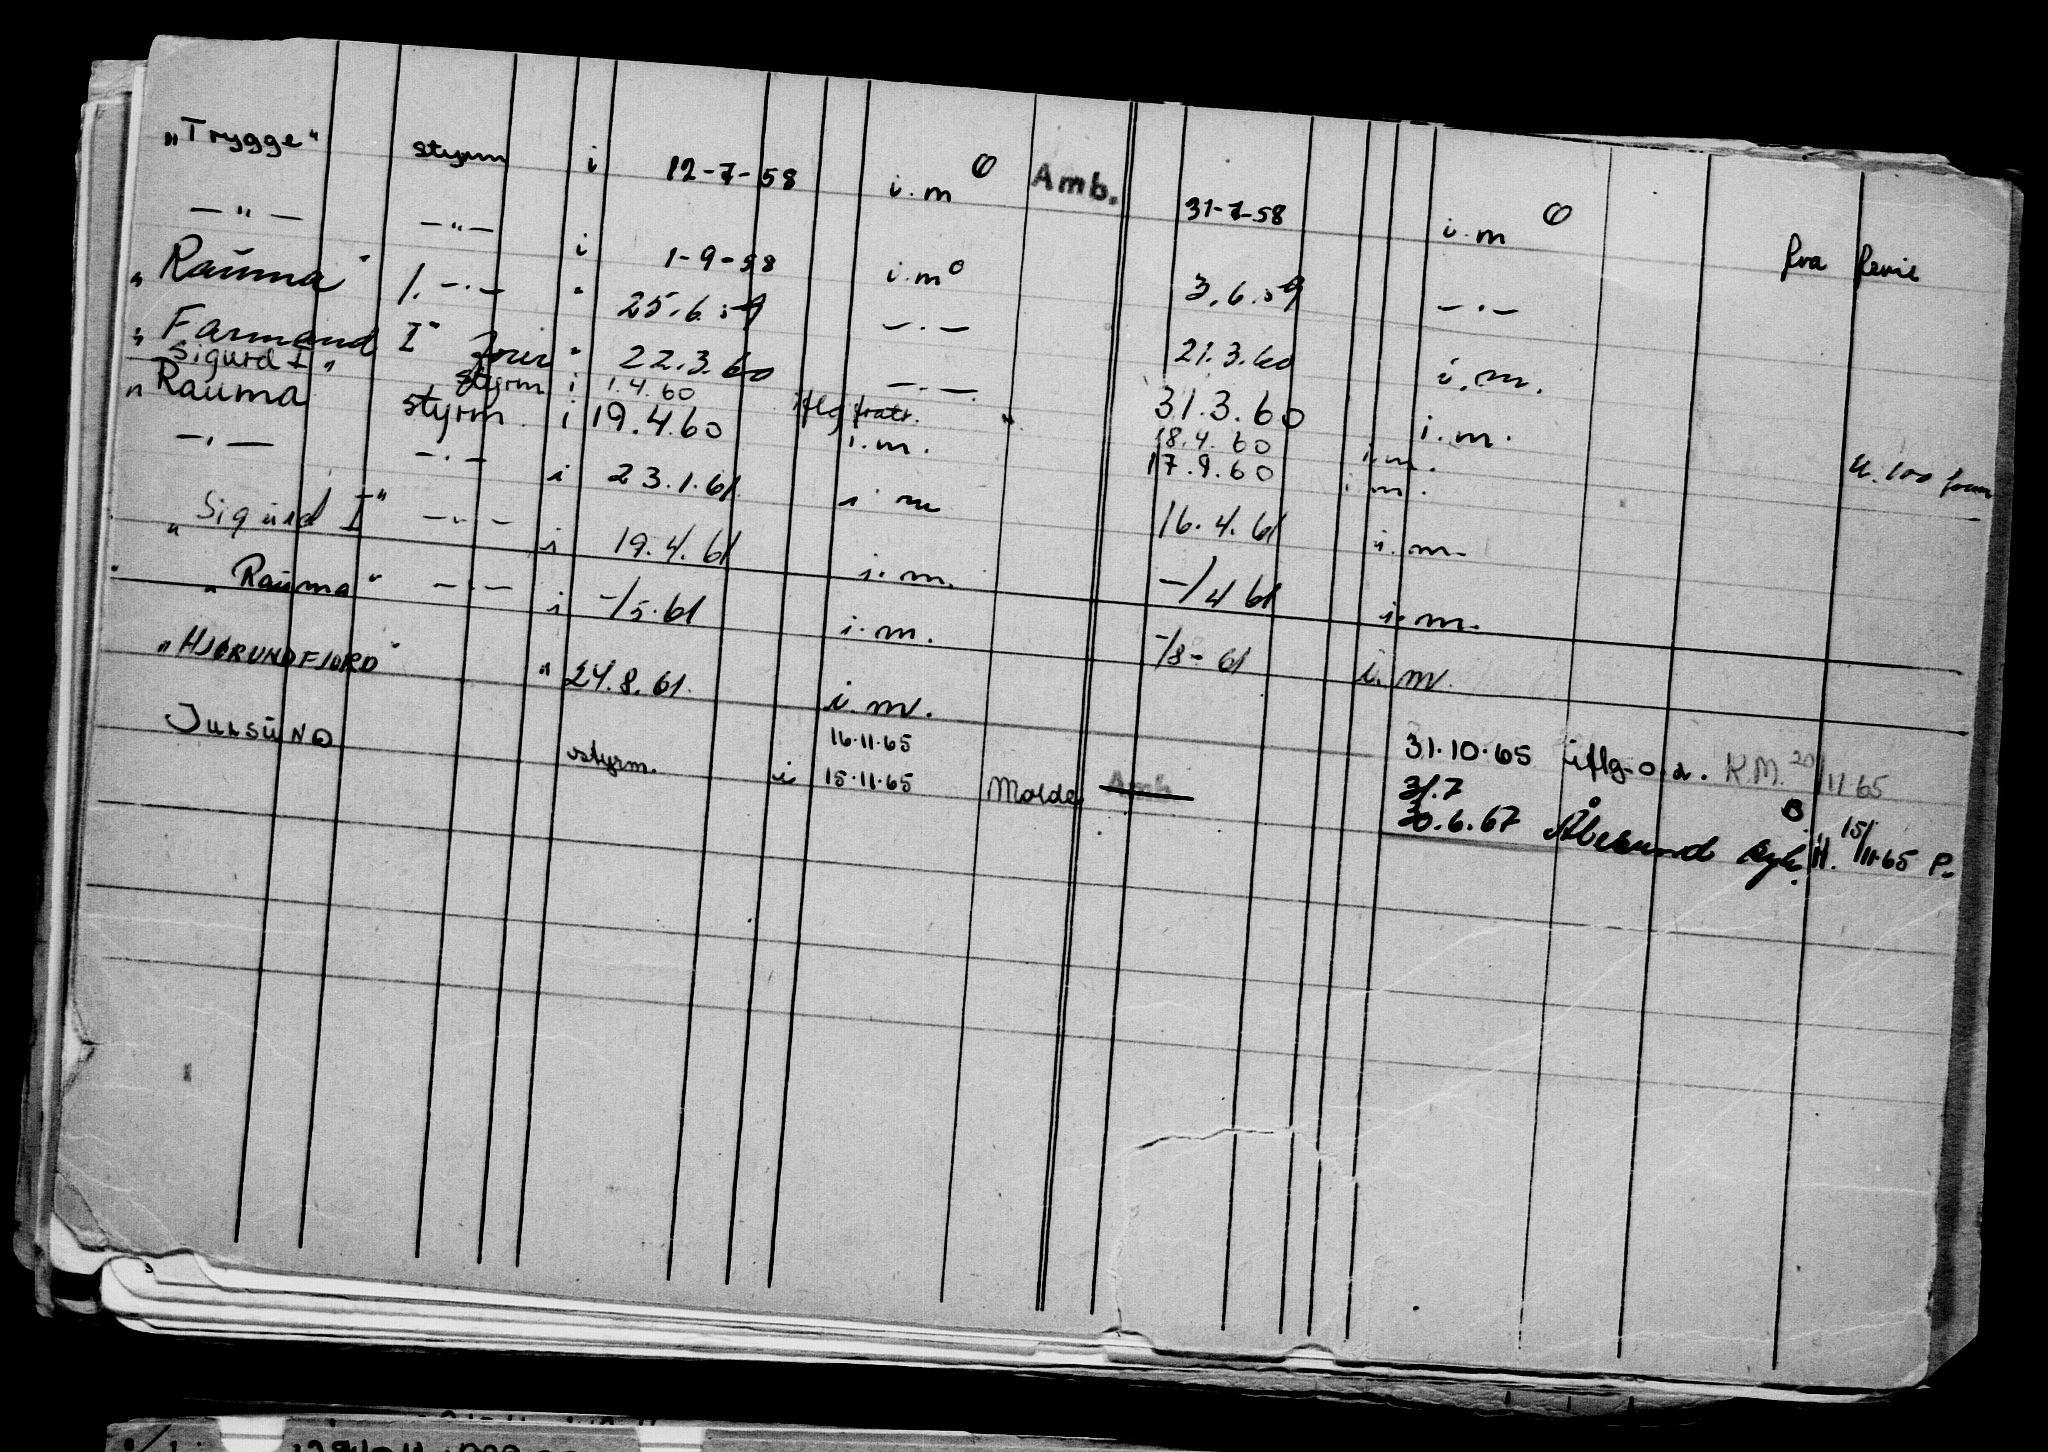 „Trygge“ styrm i 12-7-58 i.m O Amb. 31-7-58 i.m O
—"— —"— i 1-9-58 i.m O 3.6.59 —.— fra
„Rauma“ 1. —.— " 25.6.59 —.— 21.3.60 i.m.
„Farmand I“ " 22.3.60 —.— 31.3.60 i.m.
„Sigurd I“ styrm i 1.4.60 iflg fratr. " 18.4.60 i.m.
„Rauma styrm. i 19.4.60 i.m. 17.9.60 i.m.
—.— —.— i 23.1.61 i m 16.4.61 i.m.
„Sigurd I“ —.— i 19.4.61 i.m. -/4 61 i.m.
„Rauma“ —.— i -/5.61 i.m. -/8-61 i.m.
„HJØRUNDFJORD“ " 24.8.61. i.m. 31.10.65 iflg. o.a. R.M. 20/11 65
16.11.65 31.7
JULSUND styrm. i 15.11.65 Molde Amb 30.6.67 Ålesund syk. H. 15/11.65 P.